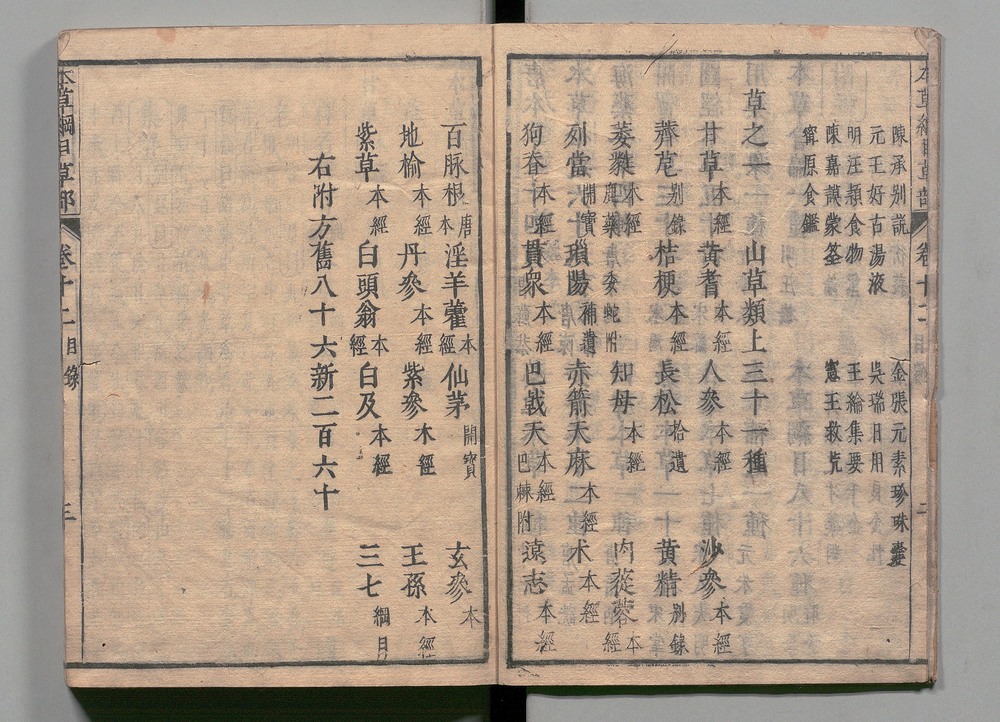 本草綱目草部 卷十二目錄 二
陳承别說 金張元素珍珠囊
元王好古湯液 吳瑞日用
明汪頴食物 王綸集要
陳嘉謨蒙筌 寗王救荒
甯原食鑑
草之一 山草類上三十一種
甘草本經 黄耆本經 人參本經 沙參本經
薺苨别錄 桔梗本經 長松拾遺 黄精别錄
萎蕤本經 鹿藥 委蛇附 知母本經 肉蓯蓉本經
列當開寶 瑣陽補遺 赤箭天麻本經 术本經
狗脊本經 貫衆本經 巴戟天本經 巴棘附 遠志本經
百脉根唐本 淫羊藿本經 仙茅開寶 玄參本
地榆本經 丹參本經 紫參本經 王孫本經
紫草本經 白頭翁本經 白及本經 三七綱目
右附方舊八十六新二百六十
本草綱目草部 卷十二目錄 三